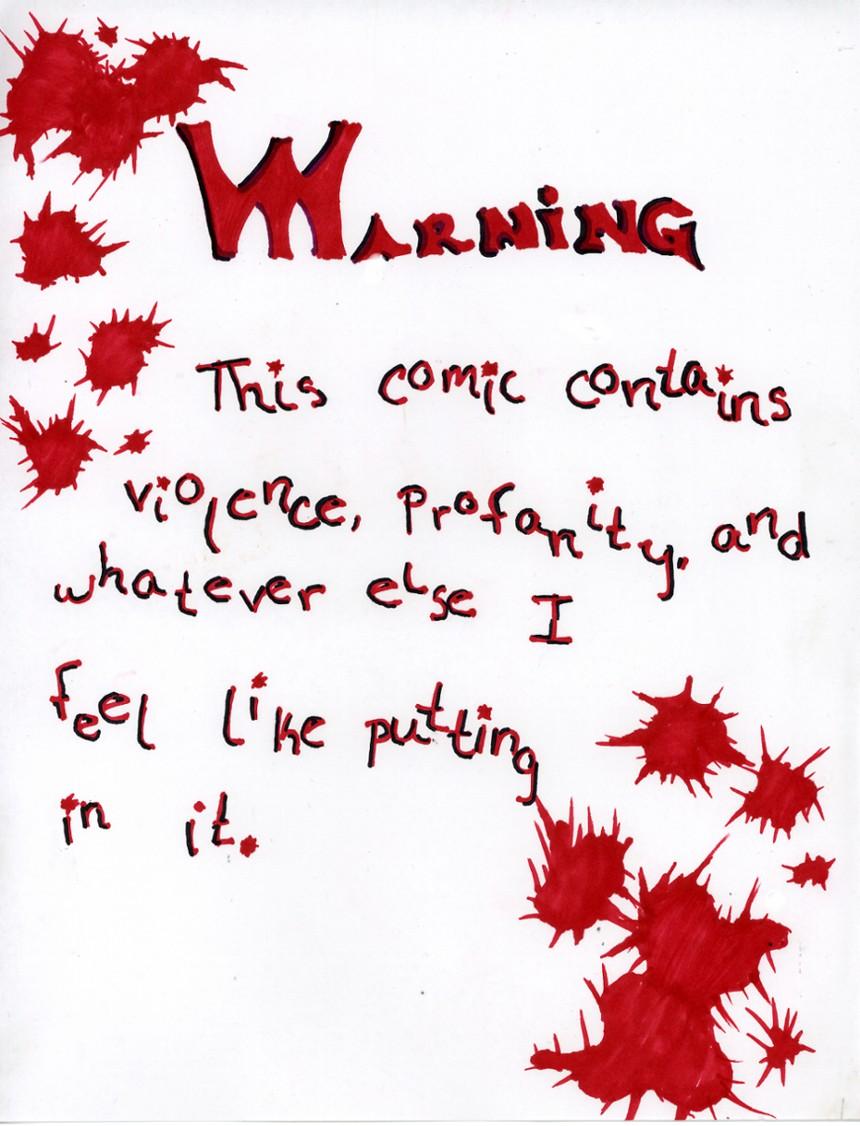 WARNiNG
This comic contains
violence, profanity, and
whatever else I
feel like putting
in it.